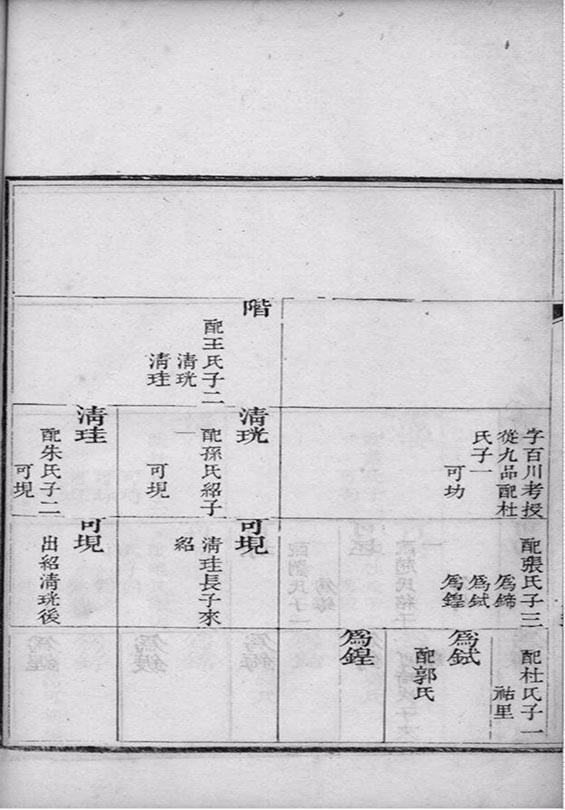 階
配王氏子二
清珖
清珪
字百川考授
從九品配杜
氏子一
可功
清珖
配孫氏紹子
一
可現
清珪
配朱氏子二
可現
配張氏子三
爲鍗
爲鉽
爲鍠
可現
清珪長子來
紹
可現
出紹清珖後
配杜氏子一
祐里
爲鉽
配郭氏
爲鍠